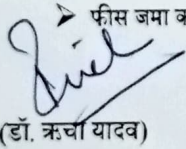 ➢ फीस जमा क
(डॉ. ऋचा यादव)